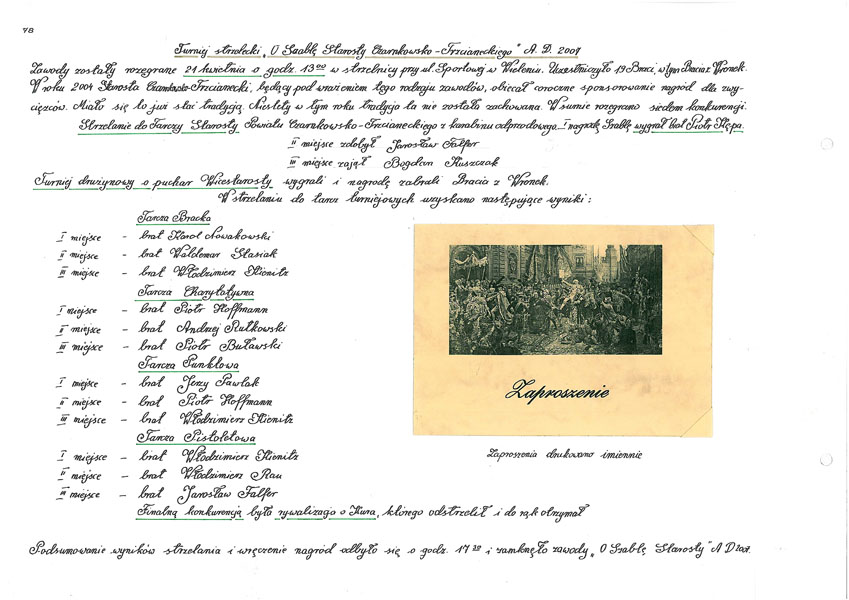 78
Turniej strzelecki „O Szablę Starosty Czarnkowsko-Trzcianeckiego" A.D. 2007
Zawody zostały rozegrane 21 kwietnia o godz. 13⁰⁰ w strzelnicy przy ul. Sportowej w Wieleniu. Uczestniczyło 19 Braci, w tym Bracia z Wronek.
W roku 2004 Starosta Czarnkowsko-Trzcianecki, będący pod wrażeniem tego rodzaju zawodów, obiecał coroczne sponsorowanie nagród dla zwy-
cięzców. Miało się to już stać tradycją. Niestety w tym roku tradycja ta nie została zachowana. W sumie rozegrano siedem konkurencji.
Strzelanie do Tarczy Starosty Powiatu Czarnkowsko-Trzcianeckiego z karabinu odprodowego. I nagrodę Szablę wygrał brat Piotr Kępa.
II miejsce zdobył Jarosław Falfer
III miejsce zajął Bogdan Kuszczak
Turniej drużynowy o puchar Wicestarosty wygrali i nagrodę zabrali Bracia z Wronek.
W strzelaniu do tarcz turniejowych uzyskano następujące wyniki:
Tarcza Bracka
I miejsce – brat Karol Nowakowski
II miejsce – brat Waldemar Stasiak
III miejsce – brat Włodzimierz Kienitz
Tarcza Charytatywna
I miejsce – brat Piotr Hoffmann
II miejsce – brat Andrzej Rutkowski
III miejsce – brat Piotr Buławski
Tarcza Punktowa
I miejsce – brat Jerzy Pawlak
II miejsce – brat Piotr Hoffmann
III miejsce – brat Włodzimierz Kienitz
Tarcza Pistoletowa
I miejsce – brat Włodzimierz Kienitz
II miejsce – brat Włodzimierz Rau
III miejsce – brat Jarosław Falfer
Zaproszenie
Zaproszenia drukowano imiennie
Finalną konkurencją była rywalizacja o Kura, którego odstrzelił i do rąk otrzymał
Podsumowanie wyników strzelania i wręczenie nagród odbyło się o godz. 17 i zamknęło zawody „O Szablę Starosty" A D 2007.